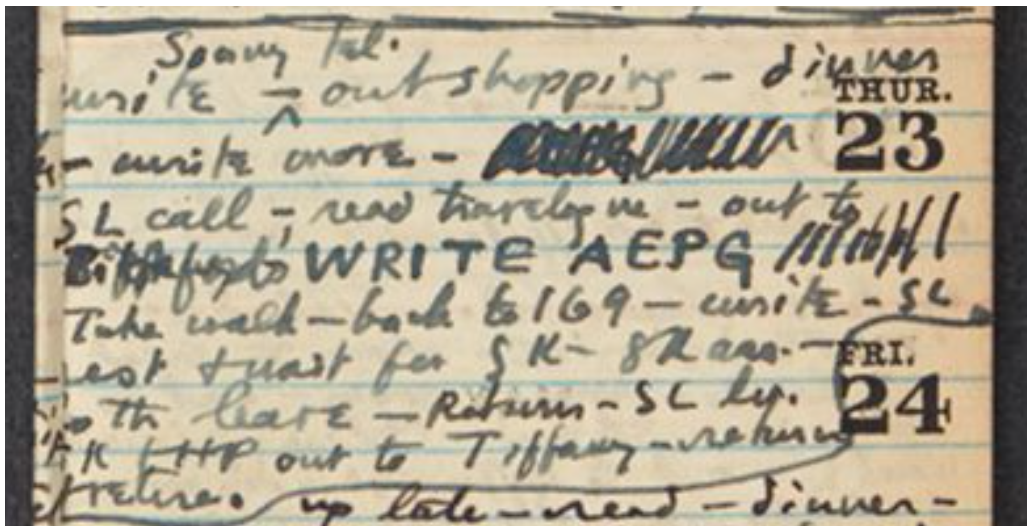 Sonny tel.
write – ^ out shopping – dinner
THUR.
23
– write more –
SL call – read travelogue – out to
WRITE AEPG
Take walk – back to 169 – write – SL
rest + wait for SK – arr. –
FRI.
24
both leave – Return – SL lv.
+ HP out to Tiffany – return
retire. up late – read – dinner –